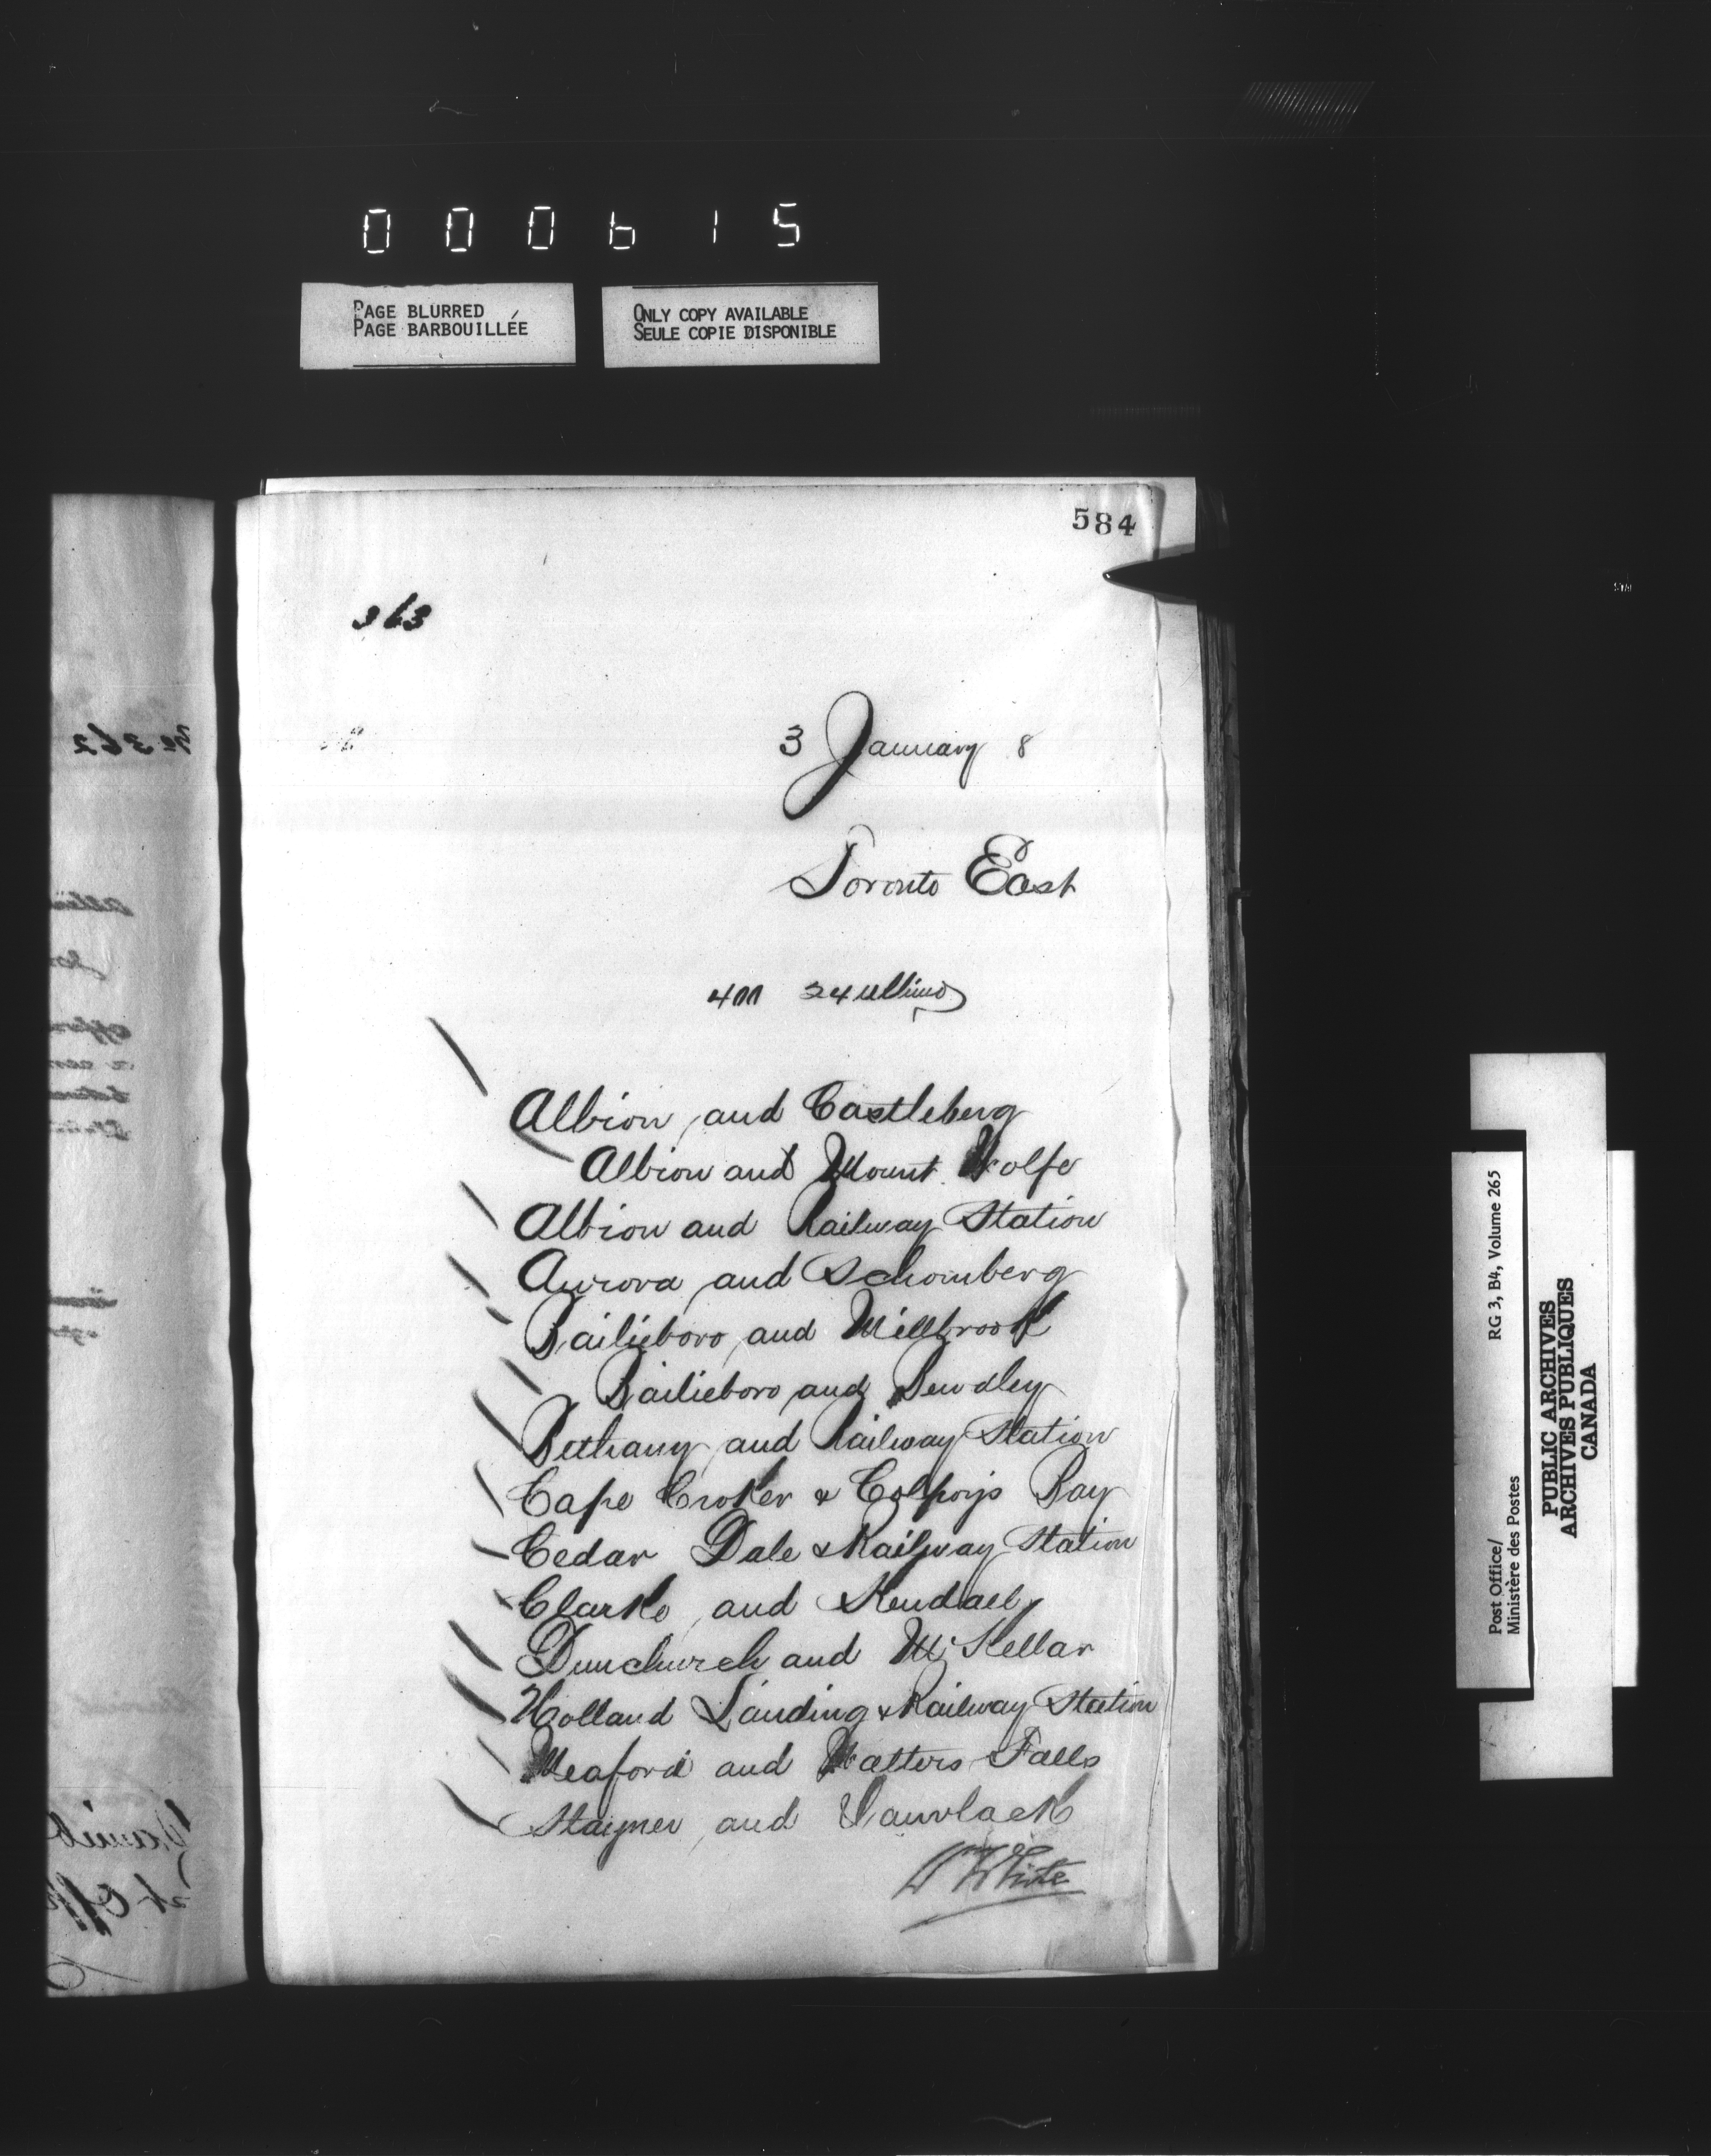 000615
PAGE BLURRED
PAGE BARBOUILLÉE
ONLY COPY AVAILABLE
SEULE COPIE DISPONIBLE
584
363
3 January 8
Toronto East
24 ultimo
Albion and Castleberg
Albion and Mount Wolfe
Albion and Railway Station
Aurora and Schomberg
Bailieboro and Millbrook
Bailieboro and Bewdley
Bethany and Railway Station
Cape Croker & Colpoys Bay
Cedar Dale & Railway Station
Clarke and Kendall
Dunchurch and McKellar
Holland Landing & Railway Station
Meaford and Walters Falls
Stayner and
White
RG 3, B4, Volume 265
Post Office/
Ministère des Postes
PUBLIC ARCHIVES
ARCHIVES PUBLIQUES
CANADA